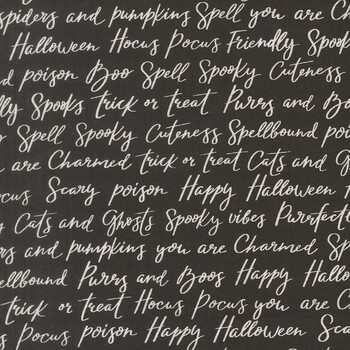 spiders and pumpkins Spell you are Ch
Halloween Hocus Pocus Friendly Spook
nd poison Boo Spell Spooky Cuteness
lly Spooks trick or treat Purrs and Bo
Spell Spooky Cuteness Spellbound poi
are Charmed trick or treat Cats and G
ocus Scary poison Happy Halloween
y Cats and Ghosts Spooky vibes Purrfecti
rs and pumpkins you are Charmed Sp
ellbound Purrs and Boos Happy Hallo
trick or treat Hocus Pocus you are C
s Pocus poison Happy Halloween Scar